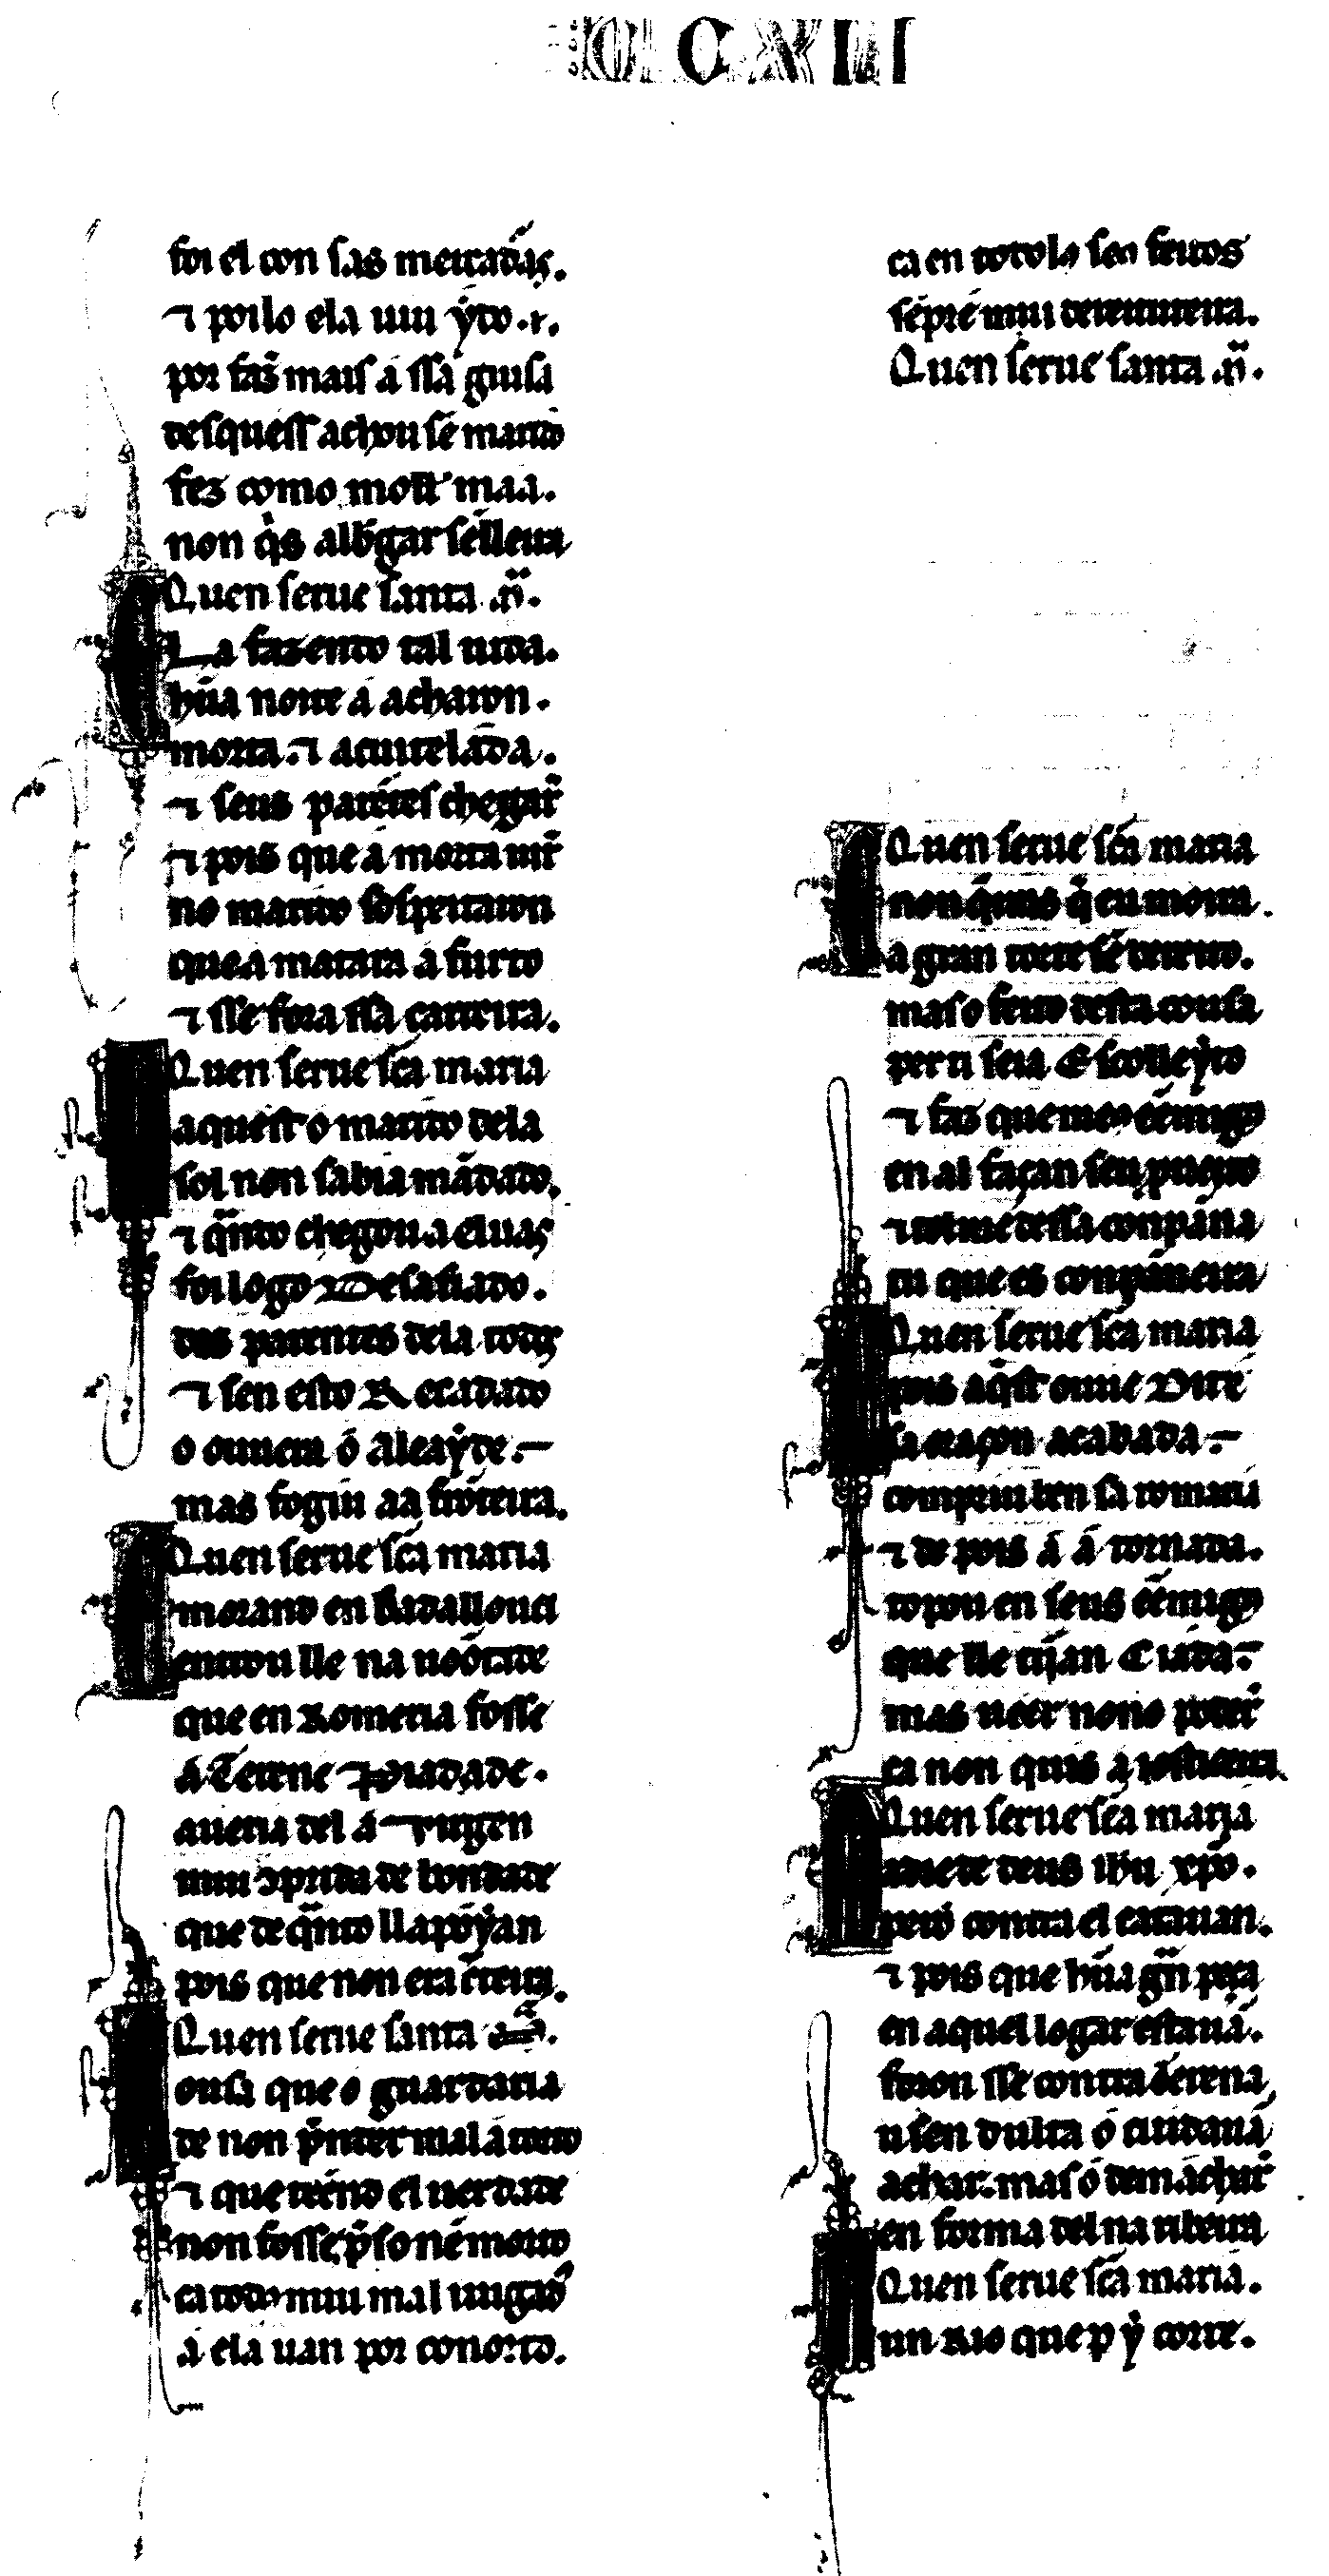 CXII
foi el con sas mercadãs.
⁊ poilo ela uiu ýdo .r.
por faz̃ mais á ssa guisa
desquess achou sẽ marido
fez como moll' maa.
non q̇s alb̃gar sẽlleira
Quen serue santa .ɱ̃.
La fazendo tal uida.
hũa noite á acharon.
morta. ⁊ acuitelada.
⁊ seus parẽtes chegar̃
⁊ pois que á morta uir̃
no marido sospeitaron
que a matara á furto
⁊ sse fora ssa carreira.
Quen serue sc̃a maria
aquest o marido dela
sol non sabia mãdado.
⁊ q̃ndo chegou a eluas
foi logo Desafiado.
dos parentes dela todos
⁊ sen esto Recadado
o ouuera ó Alcaýde.
mas fogiu aa frõteira.
Quen serue sc̃a maria
morand en Badallouci
entrou lle na uoõtade
que en Romeria fosse
á Terena
aueria del á Uirgen
mui ↄprida de bondade
que de q̃nto ll apõyan
pois que non era c̃teira.
Quen serue santa
ousa que o guardaria
de non p̃nder mal á torto
⁊ que dizẽdo el uerdade
non fosse p̃so nẽ morto
ca todo mui mal uirgad'
á ela uan por conorto.
ca en todolos seus feitos
sẽpre mui dereitureira.
Quen serue santa .ɱ̃.
Quen serue sc̃a maria
non q̃ras q̃ eu moira.
a gran torto sẽ dereito.
mas o feito desta cousa
per ti seia Escolleýto
⁊ faz que meos ẽemigos
en al façan seu proueito
⁊ tolme dessa conpãna
tu que es conpãneira
Quen serue sc̃a maria
pois aq̃st ouue Dito
sa oraçon acabada
compriu ben sa romaria
⁊ de pois á á tornada.
topou en seus ẽemigos
que lle tiỹan Ciada.
mas ueer nono poder̃
ca non quis a iostiçeira.
Quen serue sc̃a maria
madre de deus ih̃u xp̃o.
pero contra el catauan.
⁊ pois que hũa gñ peça
en aquel logar estauã.
foron sse contra Terena
u sen dulta ó cuidauã
achar. mas ó dem achar̃
en forma del na ribeira
Quen serue sc̃a maria.
un Rio que p ỹ corre.